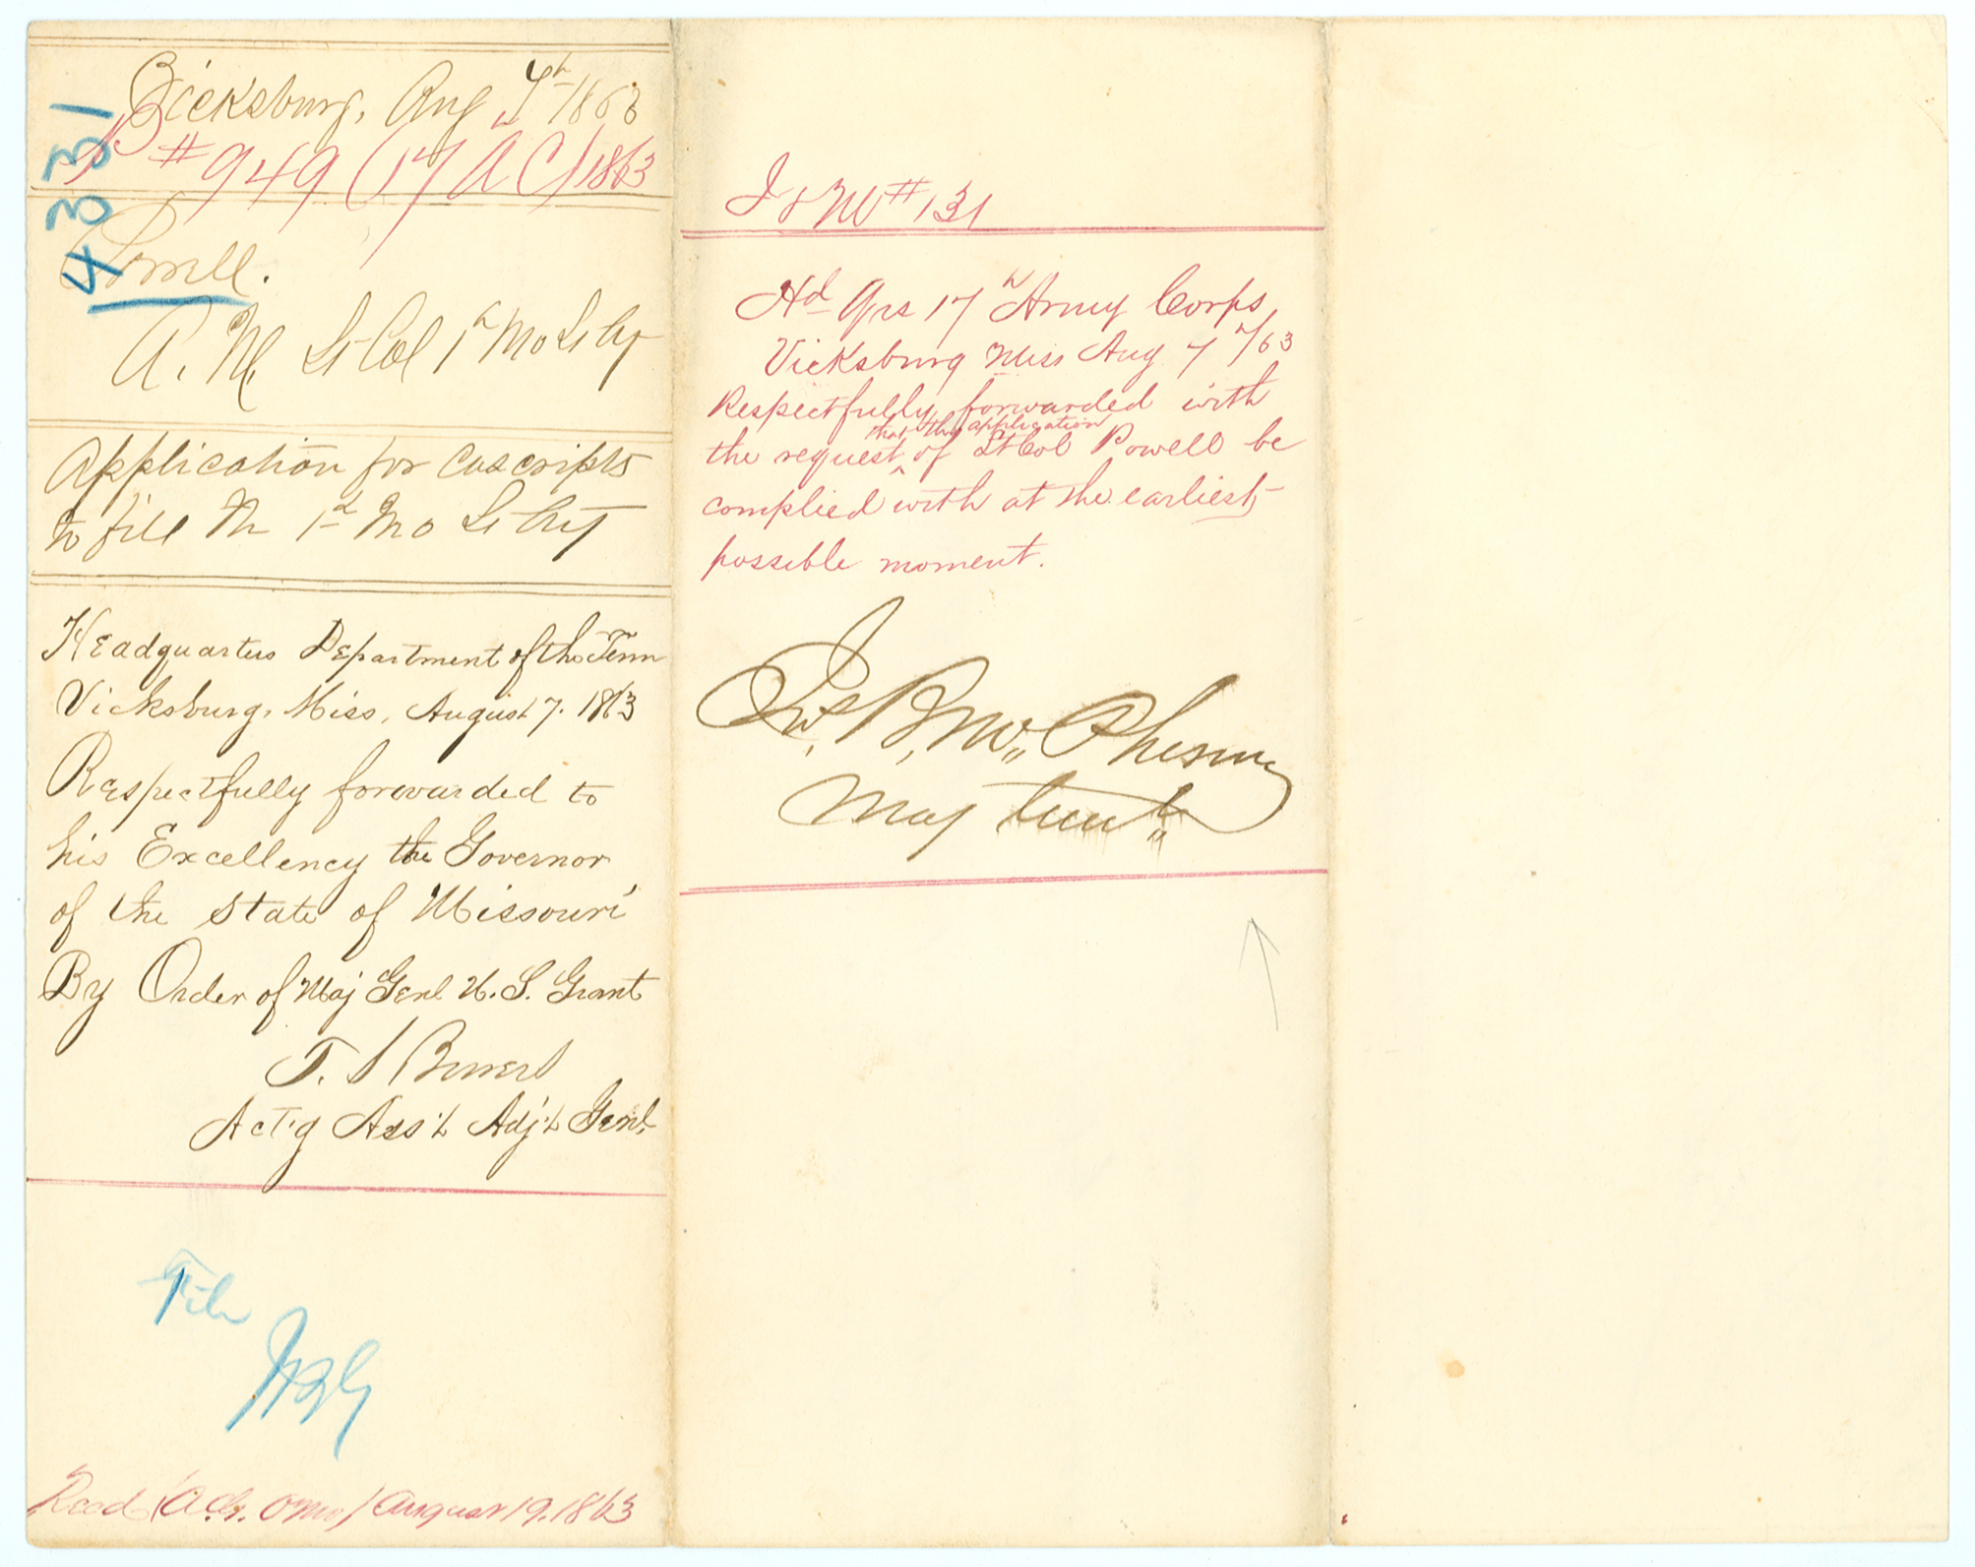 Vicksburg, Aug 4th 1863
P # 949 (17 A C) 1863
4331
Powell.
A. M. Lt Col 1st Mo Lt Arty
Application for conscripts
to fill the 1st Mo Lt Arty
Headquarters Department of the Tenn
Vicksburg, Miss, August 7. 1863
Respectfully forwarded to
his Excellency the Governor
of the State of Missouri
By Order of Maj Genl U. S. Grant
T. S Bowers
Act'g Ass't Adj't Genl.
File
JBG
Recd (A.G. O Mo) August 19. 1863
I & M # 131
Hd Qrs 17th Army Corps,
Vicksburg Miss Aug 7th/63
Respectfully forwarded with
that the application
the request ^ of Lt Col Powell be
complied with at the earliest
possible moment.
Jas. B. McPherson
Maj Genl